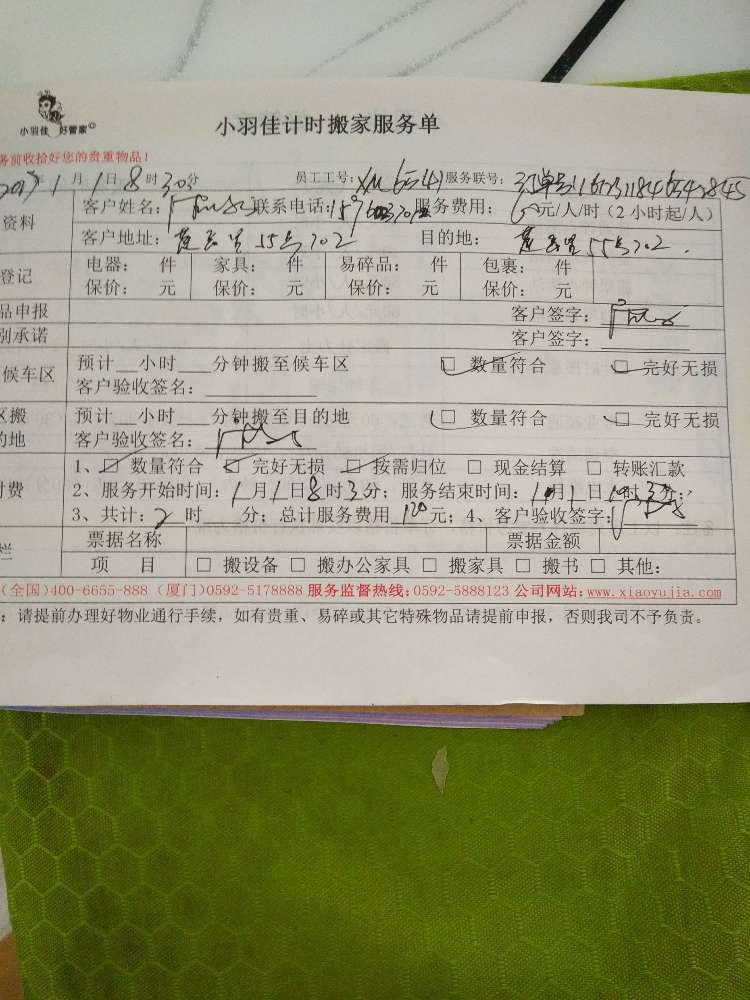 小羽佳 好管家
小羽佳计时搬家服务单
务前收拾好您的贵重物品！
2017年1月1日8时30分 员工工号：XM6541 服务联号：订单号:
资料 客户姓名： 联系电话： 服务费用： 60元/人/时（2小时起/人）
客户地址： 55号702 目的地： 55号702
登记 电器： 件 家具： 件 易碎品： 件 包裹： 件
保价： 元 保价： 元 保价： 元 保价： 元
品申报 客户签字：
别承诺 客户签字：
候车区 预计__小时___分钟搬至候车区 □ 数量符合 □ 完好无损
客户验收签名：
区搬 预计__小时___分钟搬至目的地 □ 数量符合 □ 完好无损
的地 客户验收签名：
1、□ 数量符合 □ 完好无损 □ 按需归位 □ 现金结算 □ 转账汇款
付费 2、服务开始时间：1月1日8时3分；服务结束时间：1月1日10时3分；
3、共计：2时___分；总计服务费用120元；4、客户验收签字：
栏 票据名称 票据金额
项 目 □ 搬设备 □ 搬办公家具 □ 搬家具 □ 搬书 □ 其他：
(全国)400-6655-888 (厦门)0592-5178888 服务监督热线：0592-5888123 公司网站：www.xiaoyujia.com
：请提前办理好物业通行手续，如有贵重、易碎或其它特殊物品请提前申报，否则我司不予负责。